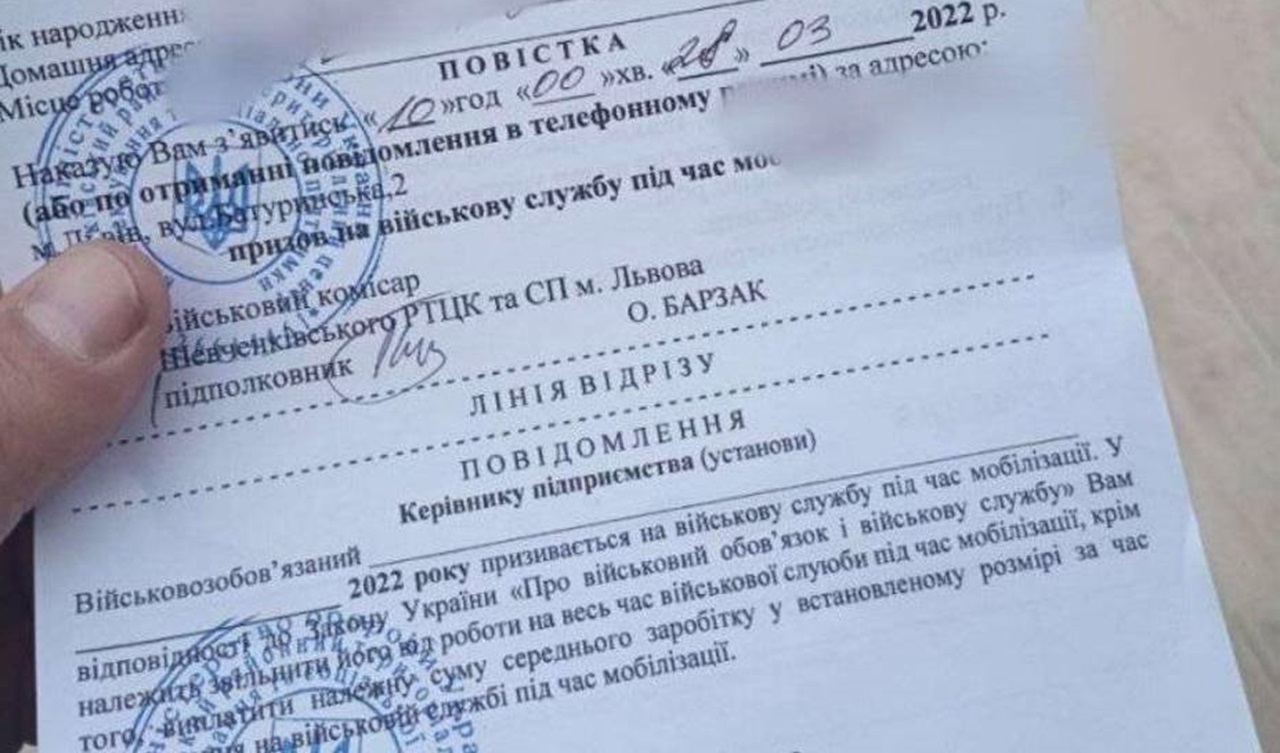 ік народження
Домашня адрес
Місце робот
ПОВІСТКА
Наказую Вам з’явитись «10»год «00»хв. «28» 03 2022 р.
(або по отриманні повідомлення в телефонному за адресою:
м.Львів, вул.Батуринська,2
призов на військову службу під час
Військовий комісар
Шевченківського РТЦК та СП м. Львова
підполковник О. БАРЗАК
ЛІНІЯ ВІДРІЗУ
ПОВІДОМЛЕННЯ
Керівнику підприємства (установи)
Військовозобов’язаний
2022 року призивається на військову службу під час мобілізації. У
відповідності до Закону України «Про військовий обов’язок і військову службу» Вам
належить звільнити його від роботи на весь час військової слуюби під час мобілізації, крім
того, виплатити належну суму середнього заробітку у встановленому розмірі за час
на військовій службі під час мобілізації.